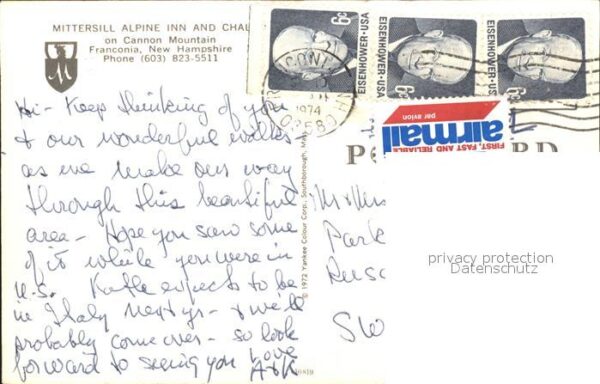 MITTERSILL ALPINE INN AND CHAL
on Cannon Mountain
Franconia, New Hampshire
Phone (603) 823-5511
Hi - Keep thinking of you
& our wonderful walks -
as we make our way
through this beautiful
area - Hope you saw some
of it while you were in
U.S. Kathe expects to be
in Italy next yr - & we'll
probably come over - so look
forward to seeing you Love
A & K
© 1972 Yankee Colour Corp., Southborough, Mass
6¢ EISENHOWER·USA
EISENHOWER·USA 6¢
EISENHOWER·USA 6¢
CONI NH
1974
0358
airmail
par avion
FIRST, FAST AND RELIABLE
P
RD
Mr & Mrs
Park
Rusc
SW
privacy protection
Datenschutz